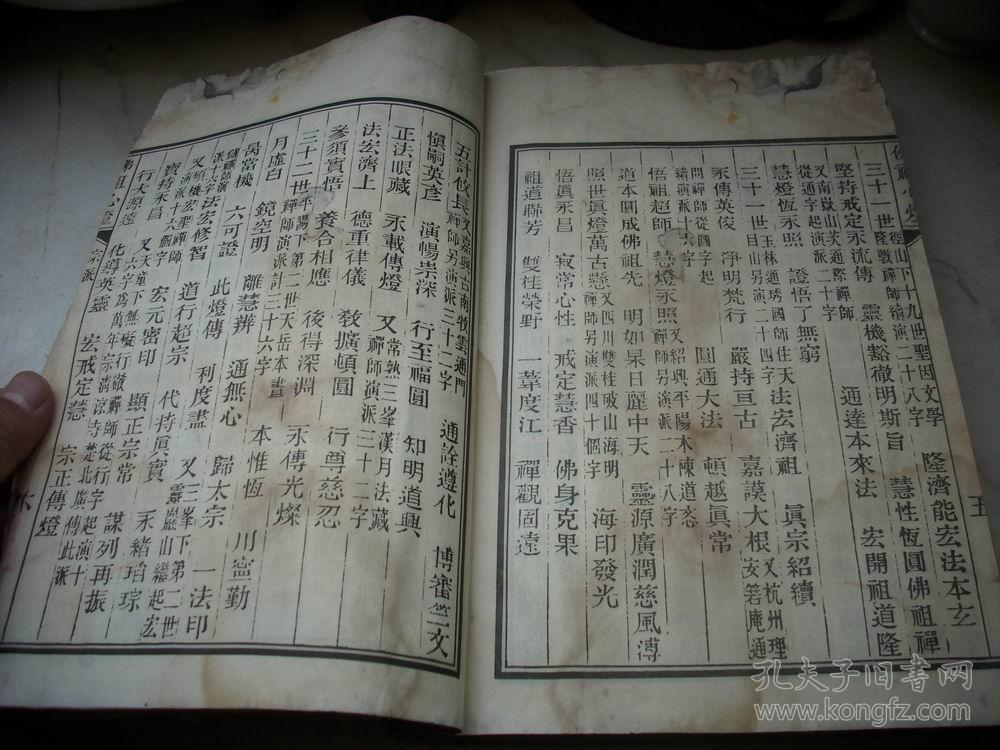 佛祖心燈
五
三十一世徑山下十九世聖因文學隆教禪師續演二十八字 隆濟能宏法本玄
堅持戒定永流傳 靈機豁徹明斯旨 慧性恆圓佛祖禪
又南嶽山茨通際禪師從通字起演派二十字 通達本來法 宏開祖道隆
慧燈恆永照 證悟了無窮
三十一世天目山玉林通琇國師住另演二十四字 法宏濟祖 眞宗紹續
永傳英俊 淨明梵行 嚴持亘古 嘉謨大根 又杭州理安箬庵通
問禪師從四字起續演十六字 圓通大法 頓越眞常
悟祖超師 慧燈永照 又紹興平陽木陳道忞禪師另演派二十八字
道本圓成佛祖先 明如杲日麗中天 靈源廣潤慈風溥
照世眞燈萬古懸 又四川雙桂破山海明禪師另演派四十個字 海印發光
悟眞永昌 寂常心性 戒定慧香 佛身克果
祖道聯芳 雙桂榮野 一葦度江 禪觀固遠
五計攸長 又嘉興古南牧雲通門禪師另演派三十二字 通詮遵化 博審竺文
愼嗣英彥 演暢崇深 行至福圓 知明道興
正法眼藏 永載傳燈 又常熟三峯漢月法藏禪師演派三十二字
法宏濟上 德重律儀 敎擴頓圓 行尊慈忍
參須實悟 養合相應 後得深淵 永傳光燦
三十二世平陽下第二世天岳本晝禪師演派計三十六字 本惟恆
月虛白 鏡空明 離慧辨 通無心 歸太宗 川寍勤
曷當機 六可證 此燈傳 利度盡 又三峯下第二世
儲禪師演派十六字 法宏修智 道行超宗 代持眞實 一法印
又碩機宏聖禪師演派十六個字 宏元密印 顯正宗常 靈巖山繼起宏
實持永昌 又天童下萬年宗淸涼寺楚北廣傳此派 永緒瑫琮
行大源遠 化導英靈 宏戒定慧 宗正傳燈 謀列再振
佛祖心燈 宗派
孔夫子旧书网
www.kongfz.com